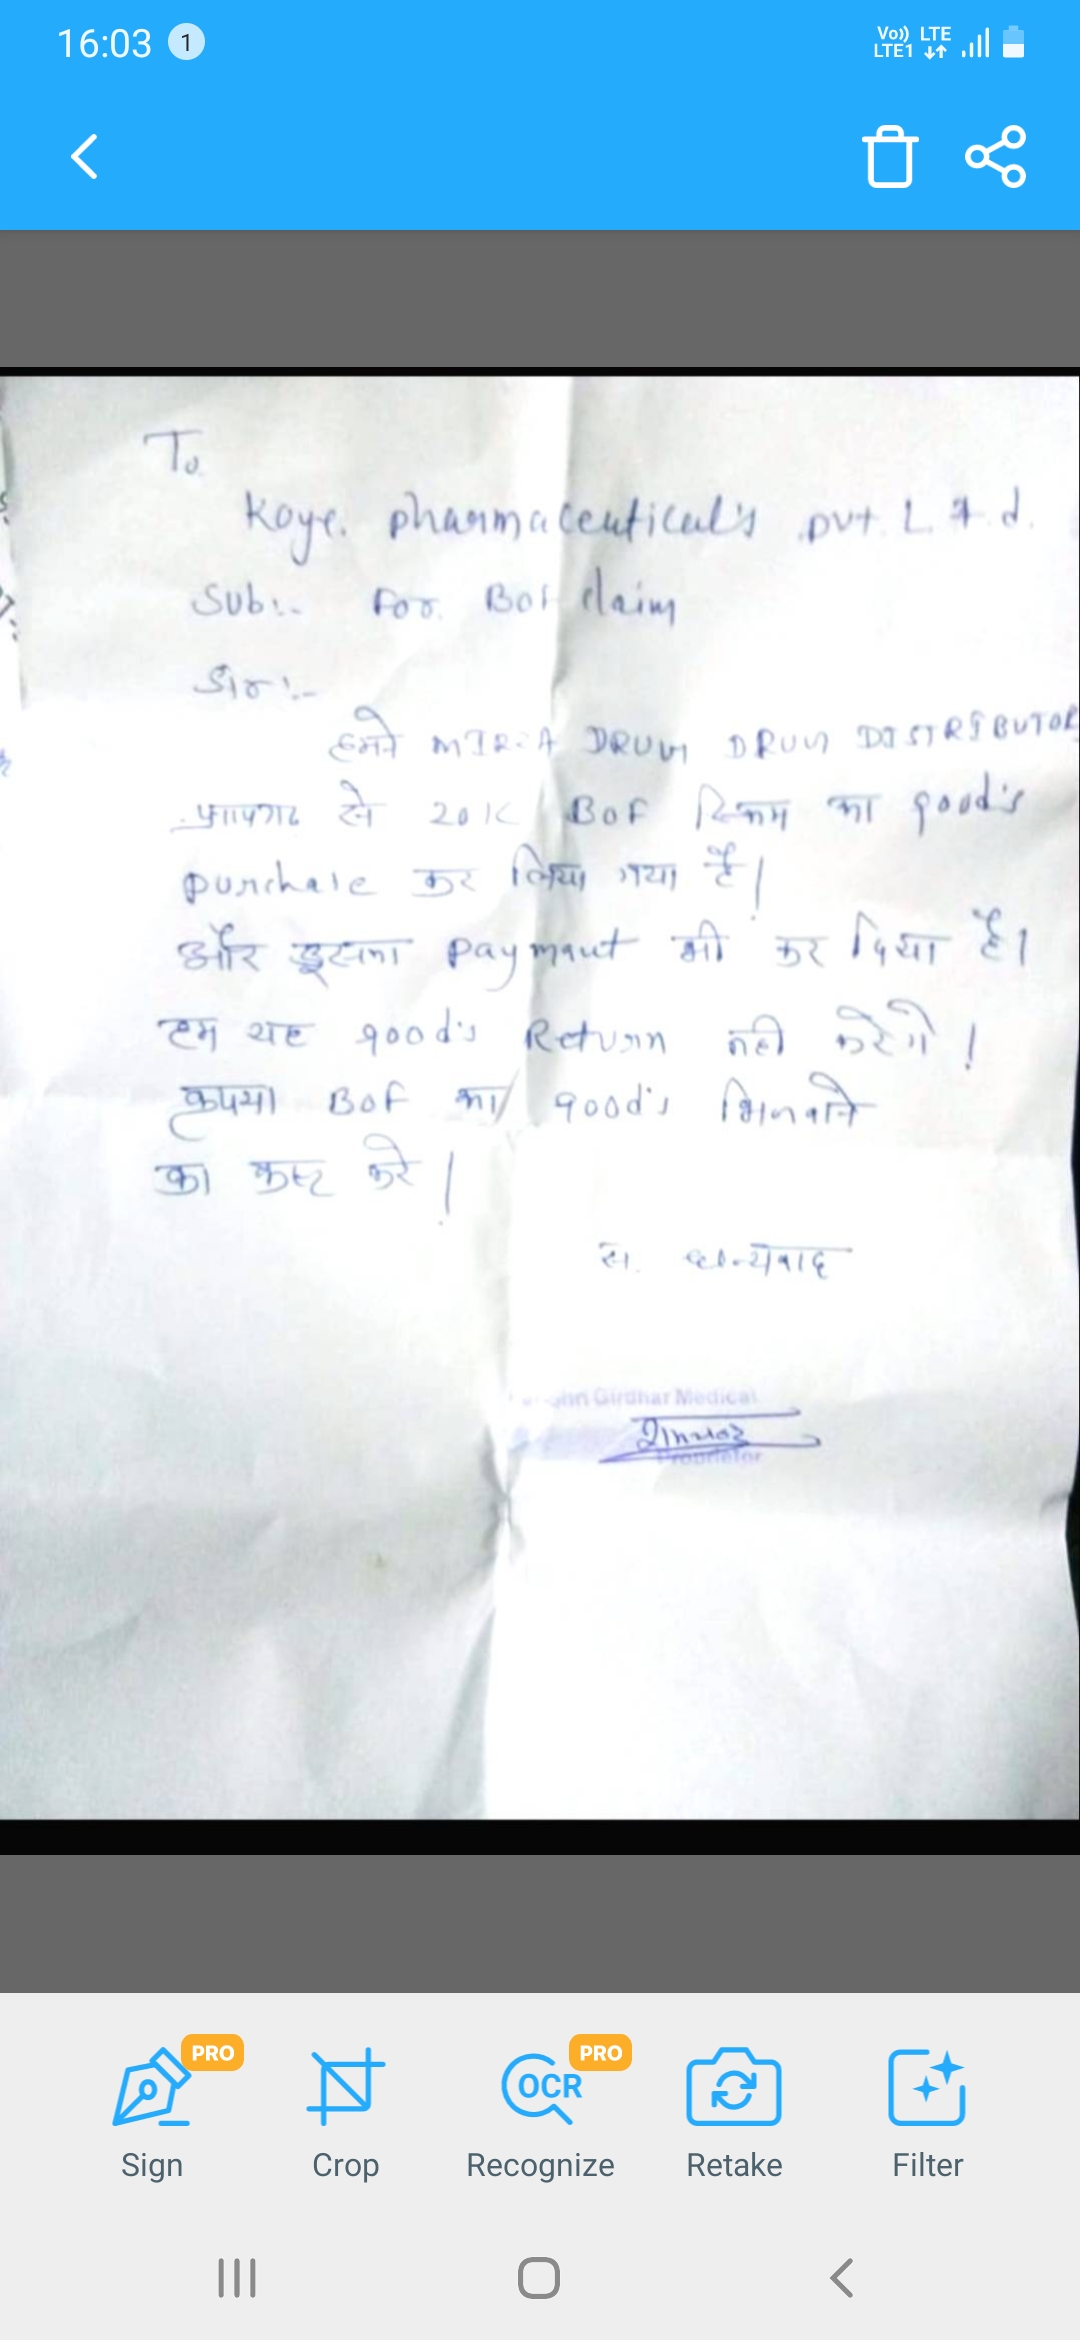 16:03 1
Vo)) LTE
LTE1
To
Koye. pharmaceutical's .pvt. L.t.d.
Sub:- For. BOF claim
सर :-
हमने DRUG DRUG DISTRIBUTOR
से BOF स्किम का good's
purchase कर लिया गया है|
और इसका paymant भी कर दिया है।
हम यह good's Return नही करेगे !
कृपया BOF का good's भिजवाने
का कष्ट करे |
स. धन्यवाद
Shri Girdhar Medical
Proprietor
PRO
PRO
OCR
Sign Crop Recognize Retake Filter